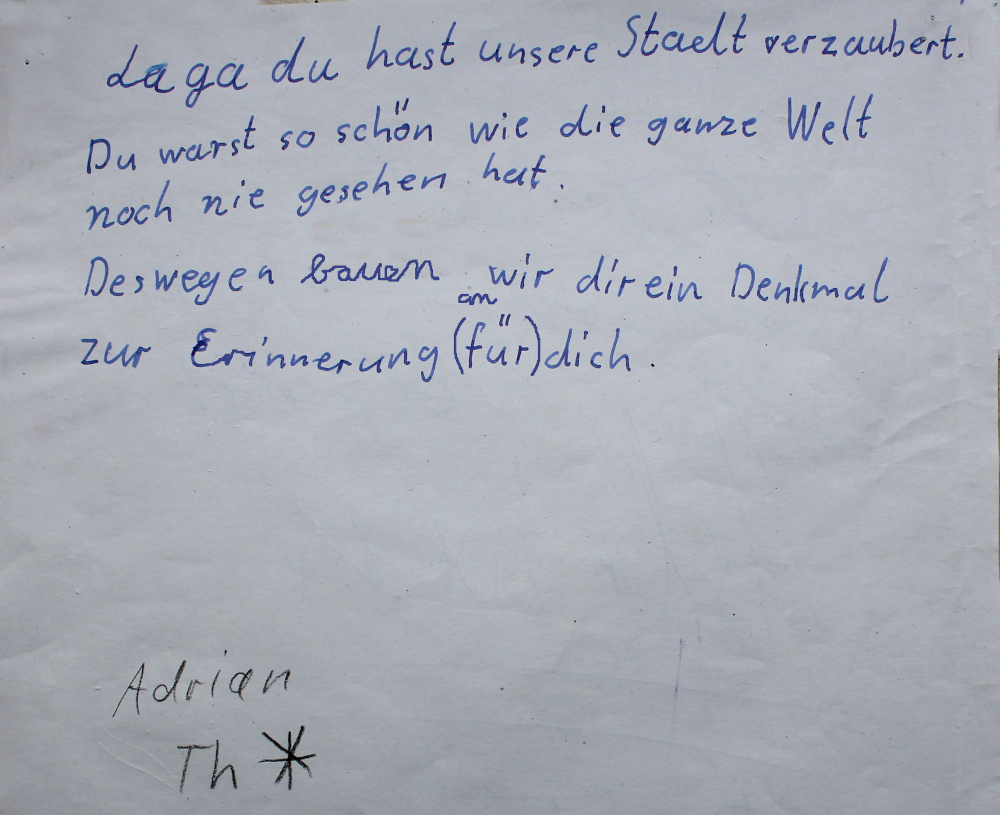 Laga du hast unsere Stadt verzaubert.
Du warst so schön wie die ganze Welt
noch nie gesehen hat.
Deswegen bauen wir dir ein Denkmal
an
zur Erinnerung (für) dich.
Adrian
Th *